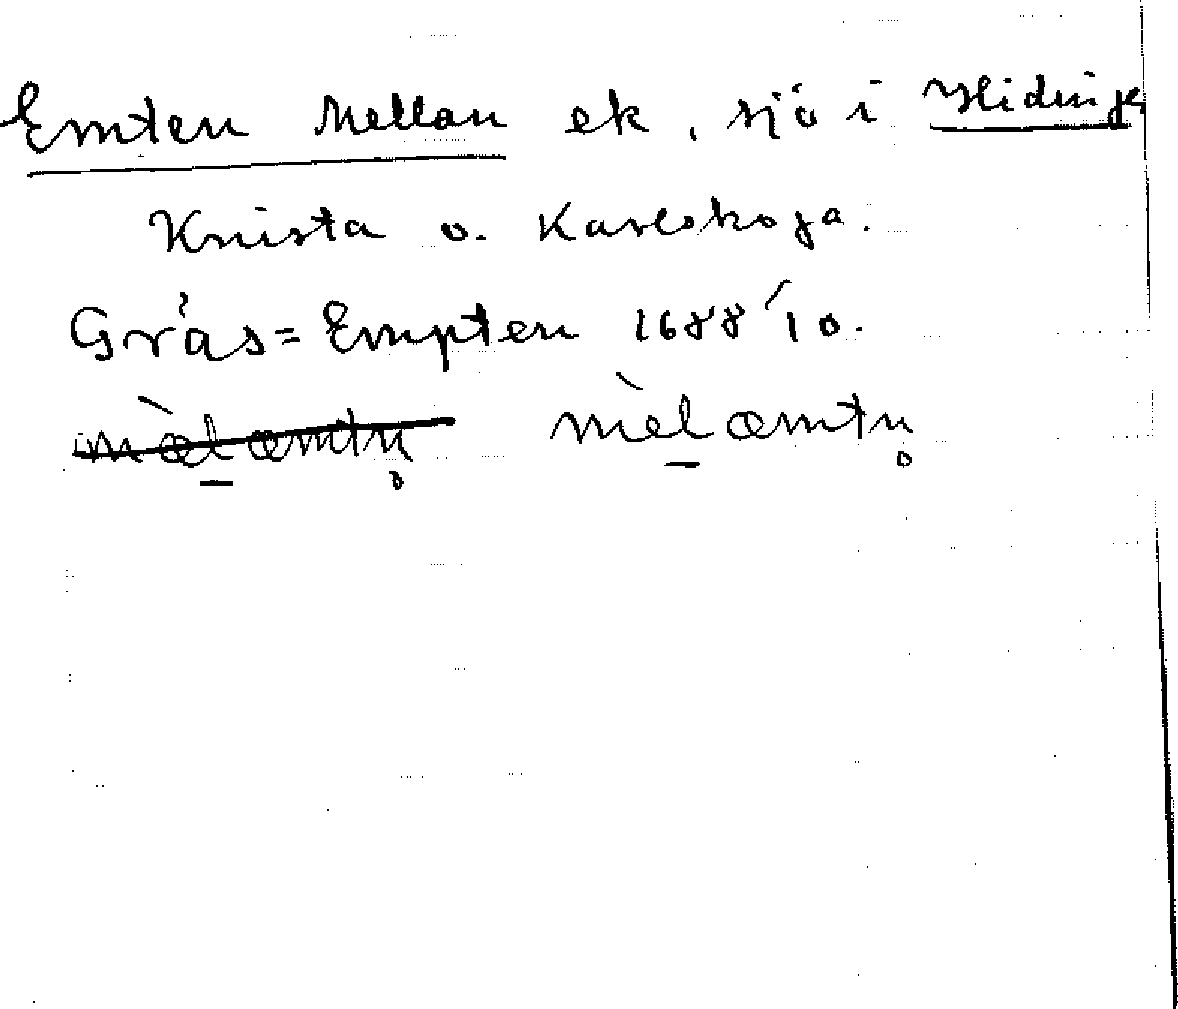 Emten Mellan ek, sjö i Hidinge
Knista o. Karlskoga.
Gräs=Empten 1688 '10.
mèlæmtn̥ mèlæmtn̥